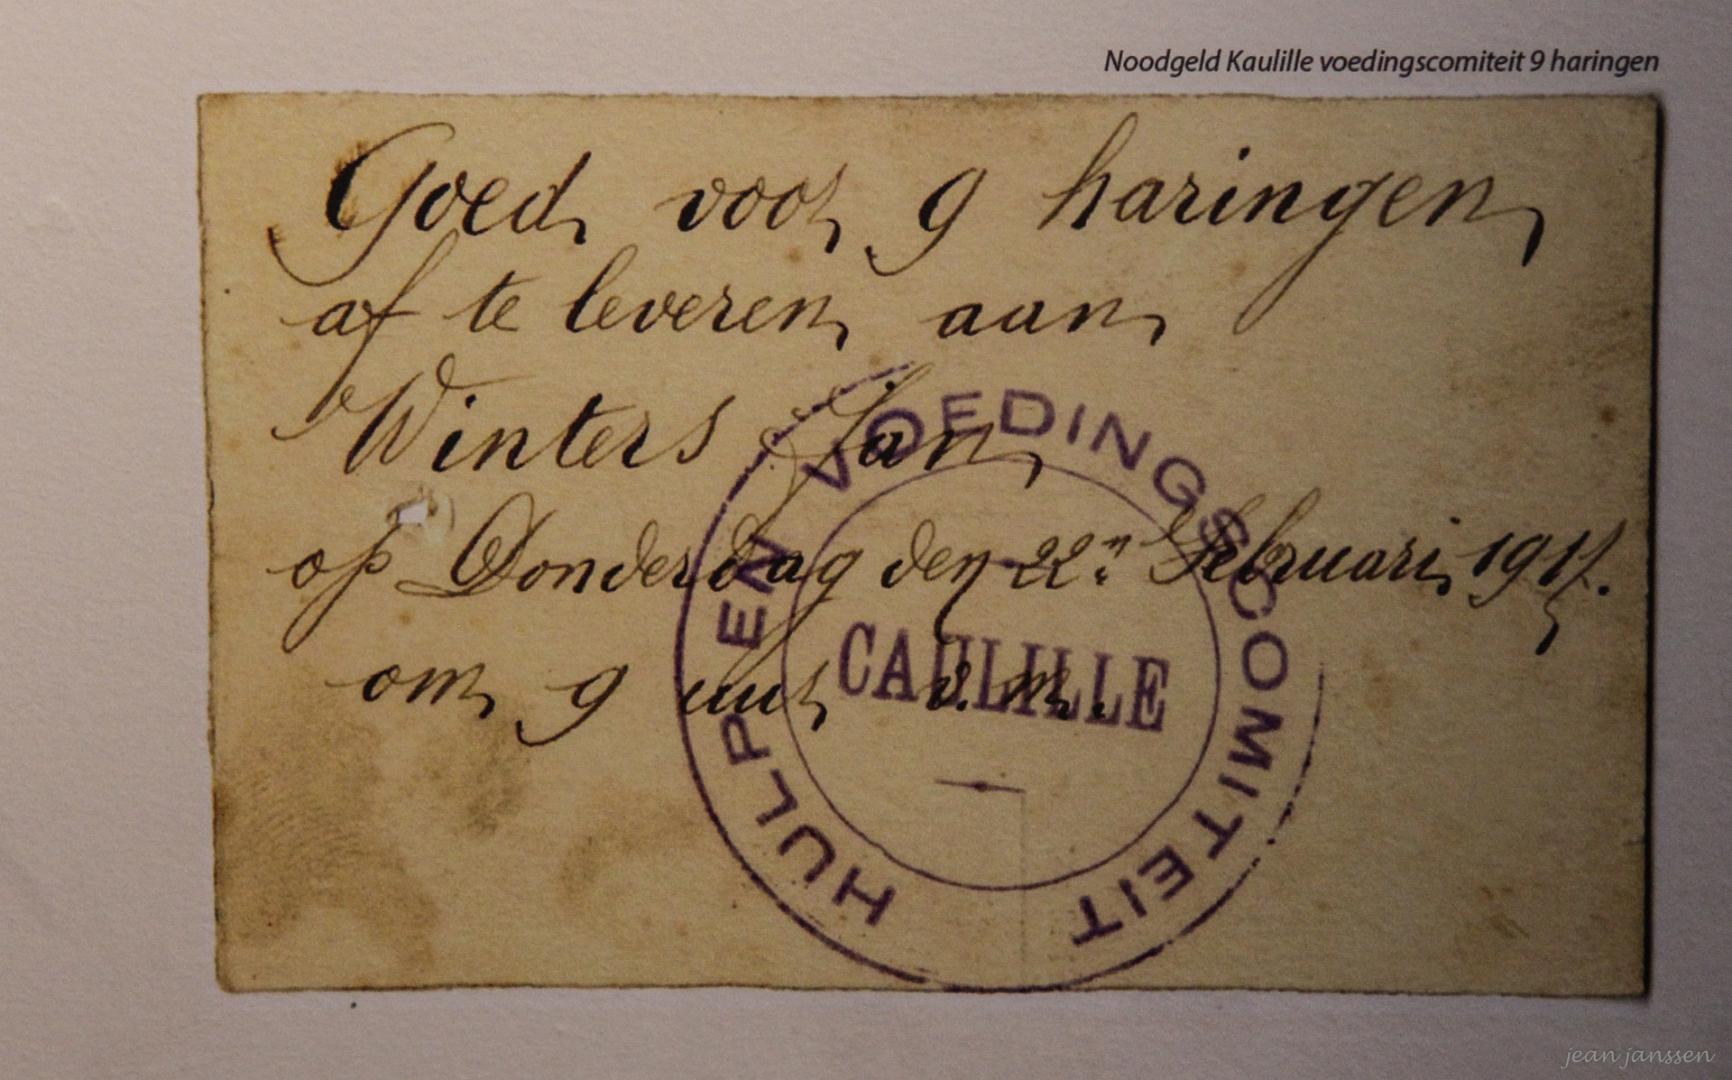 Noodgeld Kaulille voedingscomiteit 9 haringen
Goed voor 9 haringen
af te leveren aan
Winters Jan
op Donderdag den 22n Februari 1917.
om 9 uur v.m.
HULP EN VOEDINGSCOMITEIT
CAULILLE
jean janssen